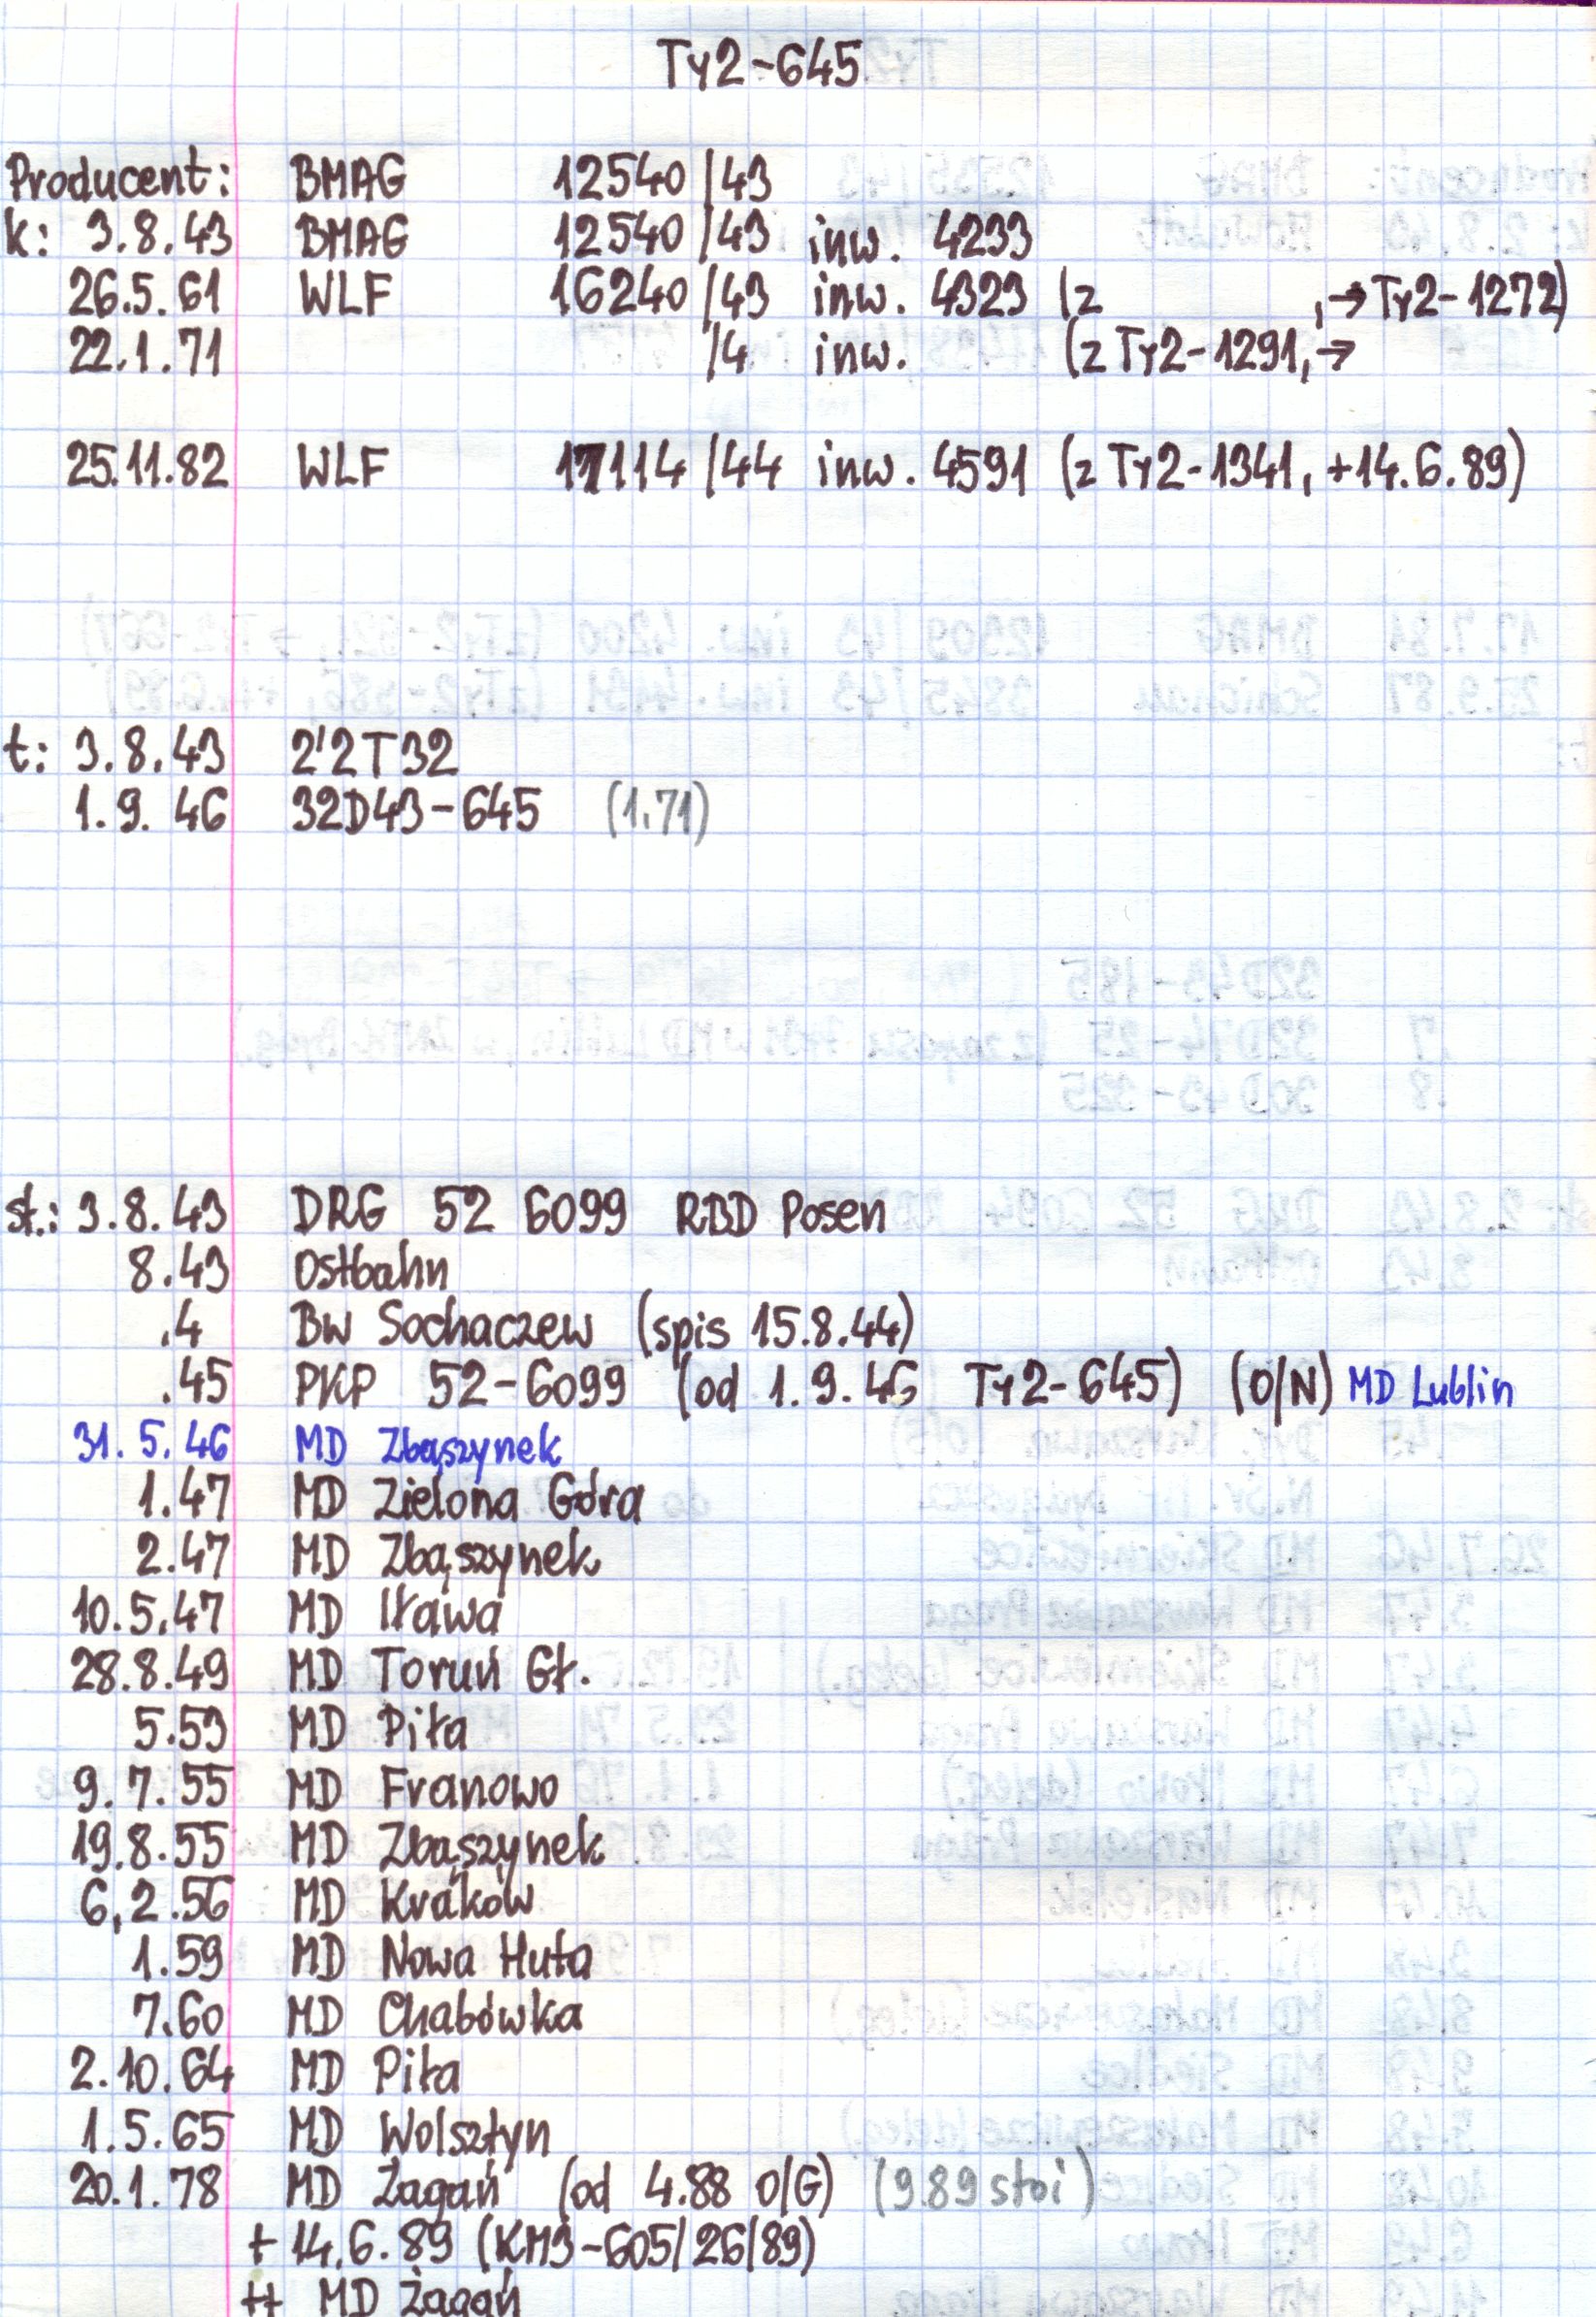 Ty2-645
Producent: BMAG 12540/43
k: 3.8.43 BMAG 12540/43 inw. 4233
26.5.61 WLF 16240/43 inw. 4323 (z , → Ty2-1272)
22.1.71 /4 inw. (z Ty2-1291, →
25.11.82 WLF 17114/44 inw. 4591 (z Ty2-1341, +14.6.89)
t: 3.8.43 2'2T32
1.9.46 32D43-645 (1.71)
st.: 3.8.43 DRG 52 6099 RBD Posen
8.43 Ostbahn
.4 Bw Sochaczew (spis 15.8.44)
.45 PKP 52-6099 (od 1.9.46 Ty2-645) (O/N) MD Lublin
31.5.46 MD Zbąszynek
1.47 MD Zielona Góra
2.47 MD Zbąszynek
10.5.47 MD Iława
28.8.49 MD Toruń Gł.
5.53 MD Piła
9.7.55 MD Franowo
19.8.55 MD Zbąszynek
6.2.56 MD Kraków
1.59 MD Nowa Huta
7.60 MD Chabówka
2.10.64 MD Piła
1.5.65 MD Wolsztyn
20.1.78 MD Żagań (od 4.88 O/G) (9.89 stoi)
+ 14.6.89 (KM3-605/26/89)
++ MD Żagań